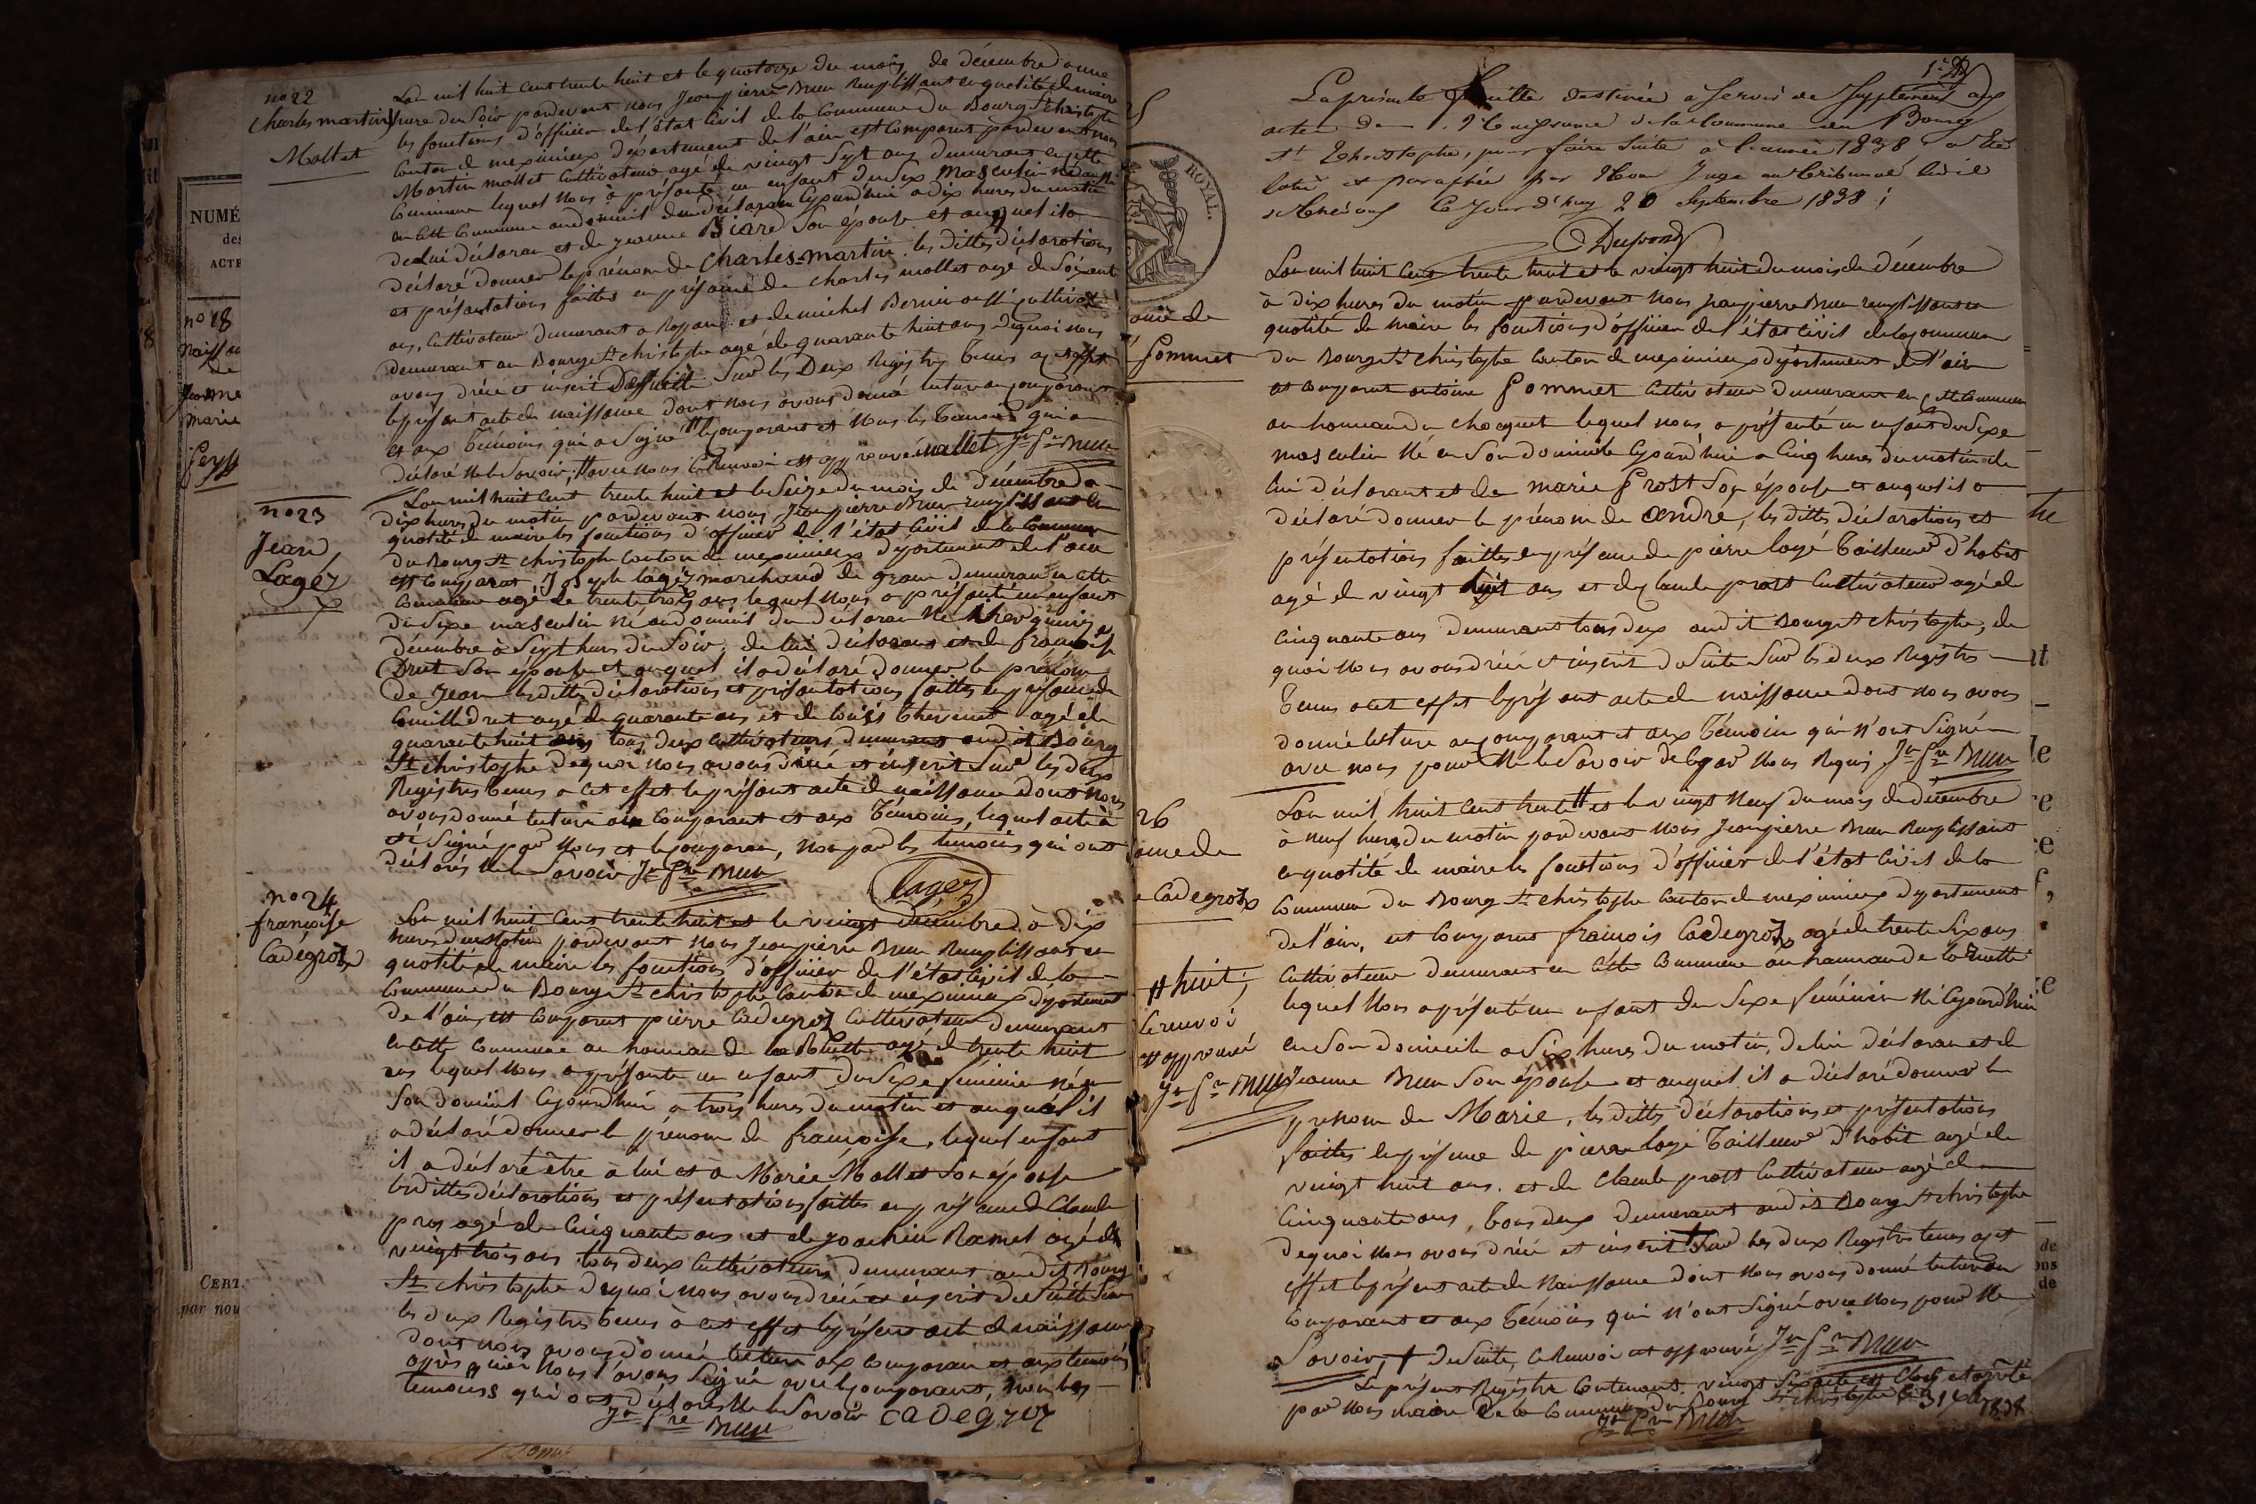 n° 22
Charles martin
Mollet
L'an mil huit cent trente huit et le quatorze du mois de décembre a une
hure du soir pardevant nous Jean pierre Brun Remplissant en quotité de maire
les fonctions d'officier de l'état civil de la commune du Bourg St christophe
canton de meximieux département de l'ain est comparut pardevant nous
Martin mollet cultivateur agé de vingt sept ans demurant en cette
commune lequel nous à présenté un enfant du sex masculin né
en cette commune audomicil du déclarant cejourdhui a dix hures du matin
de lui déclaran et de jeanne Biard son epouse et auquel il a
déclaré donner le prénom de Charles-martin les dittes déclarations
et présentations faittes en présence de charles mollet agé de soixante
ans, cultivateur demurant a et de michel Bernin cultivateur
demurant au Bourg St christophe agé de quarante huit ans dequoi nous
avons drécé et inserit Desuitte sur les Deux Registres tenus a cet effet
le présent acte de naissance dont nous avons donné lecture au comparant
et aux témoins qui a signé le comparant et nous les témoins qui
déclaré ne le savoir, avec nous le Renvoi est approuvé mollet Jn Pre Brun
n° 23
Jean
Lagéz
L'an mil huit cent trente huit et le seize du mois de décembre a
dix hures du matin pardevant nous Jean pierre Brun remplissant en
quotité de maire les fonctions d'officier de l'état civil de la commune
du Bourg St christophe canton de meximieux département de l'ain
est comparut Joseph lagéz marchand de grain demuran en cette
commune agé de trente trois ans lequel nous a présenté un enfant
du sexe masculin né audomicil du déclaran le quinze
décembre à sept hures du soir, de lui déclarant et de françoise
Drut son épouse et auquel il a déclaré donner le prénom
de Jean les dittes déclarations et présentations faittes en présence de
Camille drut agé de quarante ans et de louis thevenet agé de
quarante huit ans tous deux cultivateurs demurant audit Bourg
St christophe dequoi nous avons drécé et inserit sur les deux
Registres tenus a cet effet le présent acte de naissance dont nous
avons donné lecture au comparant et aux témoins, lequel acte à
été signé par nous et le comparan, non par les temoins qui ont
déclarés ne le savoir Jn Pre Brun
Lagéz
n° 24
françoise
Cadegroz
L'an mil huit cent trente huit et le vingt décembre à dix
hures du matin pardevant nous Jean pierre Brun Remplissant en
quotité de maire les fonctions d'officier de l'état civil de la
commune du Bourg St christophe canton de meximieux département
de l'ain, est comparut pierre Cadegroz cultivateur demurant
en cette commune au hameau de la Ruette agé de trente huit
ans lequel nous a présenté un enfant du sexe féminin né en
son domicil cejourdhui a trois hures du matin et auquel il
a déclaré donner le prénom de françoise, lequel enfant
il a déclaré être à lui et a Marie Mollet son épouse
les dittes déclarations et présentations faittes en présence de Claude
pros agé de cinquante ans et de joachin Ramel agé de
vingt trois ans tous deux cultivateurs demurant audit Bourg
St christophe dequoi nous avons drécé et inserit de suitte sur
les deux Registres tenus à cet effet le présent acte de naissance
dont nous avons donné lecture aux comparan et aux temoins
après quoi nous l'avons signé avec le comparant, non les
temoins qui ont déclarés ne le savoir cadegroz
Jn Pre Brun
NUMÉ
des
ACTE
n° 18
naissan
de
jeanne
marie
CERT
par nou
ROYAL.
La présente feuille destinée a servir de supplément aux
actes de de la commune de Bourg
St Christophe, pour faire suite à l'année 1838, a été
cotée et paraphée par Nous Juge au tribunal civil
de Trévoux Ce jour d'huy 20 Septembre 1838
Dupond
Pommet
L'an mil huit cent trente huit et le vingt huit du mois de décembre
à dix hures du matin pardevant nous jean pierre Brun remplissant en
quotité de maire les fonctions d'officier de l'état civil de la commune
du Bourg St christophe canton de meximieux département de l'ain
est comparut antoine Pommet cultivateur demurant en cette commune
au hameau du chocquet lequel nous a présenté un enfant du sexe
masculin né en son domicile cejourdhui a cinq hures du matin de
lui déclarant et de marie Prost son épouse et auquel il a
déclaré donner le prénom de andré, les dittes déclarations et
présentations faittes en présence de pierre lagé Tailleur d'habit
agé de vingt huit ans et de Claude prost cultivateur agé de
cinquante ans demurant tous deux audit Bourg St christophe, de
quoi nous avons drécé et inserit de suite sur les deux Registres
tenus a cet effet le présent acte de naissance dont nous avons
donné lecture au comparant et aux témoins qui n'ont signé
avec nous pour ne le savoir de ce par nous Requis Jn Pre Brun
26
Cadegroz
L'an mil huit cent trente # et le vingt neuf du mois de décembre
à neuf hures du matin pardevant nous Jean pierre Brun Remplissant
en quotité de maire les fonctions d'officier de l'état civil de la
commune du Bourg St christophe canton de meximieux département
de l'ain, est comparut françois Cadegroz agé de trente six ans
cultivateur demurant en cette commune au hameau de la Ruette
lequel nous a présenté un enfant du sexe féminin né cejourd'hui
en son domicile a six hures du matin, de lui déclaran et de
Jeanne Brun son épouse et auquel il a déclaré donner le
prénom de Marie, les dittes déclarations et présentations
faittes en présence de pierre lagé Tailleur d'habit agé de
vingt huit ans. et de Claude prost cultivateur agé de
cinquante ans, tous deux demurant audit Bourg St christophe
dequoi nous avons drécé et inserit sur les deux Registres tenus a cet
effet le présent acte de naissance dont nous avons donné lecture au
comparant et aux témoins qui n'ont signé avec nous pour ne
savoir, + de suite, le Renvoi est approuvé Jn Pre Brun
# huit,
le renvoi
est approuvé
Jn Pre Brun
Le présent Registre contenant vingt six acte est clos et arrêté
par nous maire de la commune du Bourg St christophe le 31 Xbre 1838
Jn Pre Brun